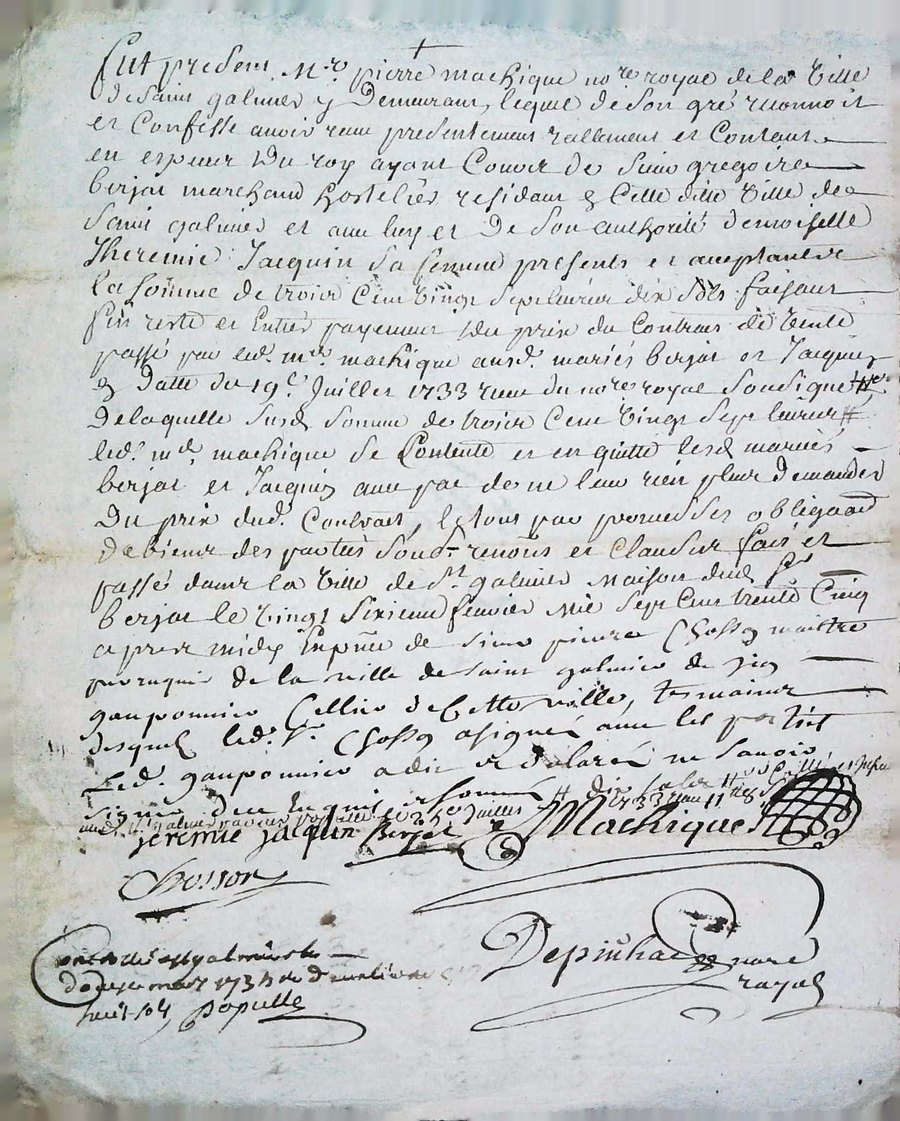 Fut present Mre pierre machique nore royal de la Ville
de Saint galmier y Demeurant, lequel de son gré reconnoit
et Confesse avoir receu presentement reallement et Contant
en especes Du roy ayant Cours de Sieur gregoire
berjat marchand hostelier residant en Cette ditte Ville de
Saint galmier et avec luy et De Son authorité demoiselle
Iheremie Jacquin Sa femme presents et acceptants
la Somme de trois Cent Vingt Sept livres dix Sols faisant
fin reste et Entier payement Du prix du Contrat de Vente
passé par led. mre machique ausd. mariés berjat et Jacquin
en Datte du 19e Juillet 1733 receu du nore royal Sousigné
De laquelle Susd Somme de trois Cent Vingt Sept livres #
led. mre machique Se Contente et en quitte lesd mariés
berjat et Jacquin avec pac de ne leur rien plus Demander
Du prix dud. Contrat, le tout par promesses obligaon
de biens des parties Soub. renons et Clauses fait et
passé dans la Ville de St galmier Maison dud Sr
berjat le Vingt Sixieme fevrier Mil Sept Cent trente Cinq
apres midy En pnce de Sieur pierre Chosson maitre
peruquier de la ville de Saint galmier de
gauponnier Cellier de Cette ville, temoins
desquels led. Sr Chosson a signé avec les parties
Led. gauponnier a dit et declaré ne Savoir
signer de ce enquis et Somme # dix Sols #
1733
jeremie jacquin Berjat Machique
Chosson
Depinhac nore
royal
Controllé a St galmier le
mars 1735
Populle